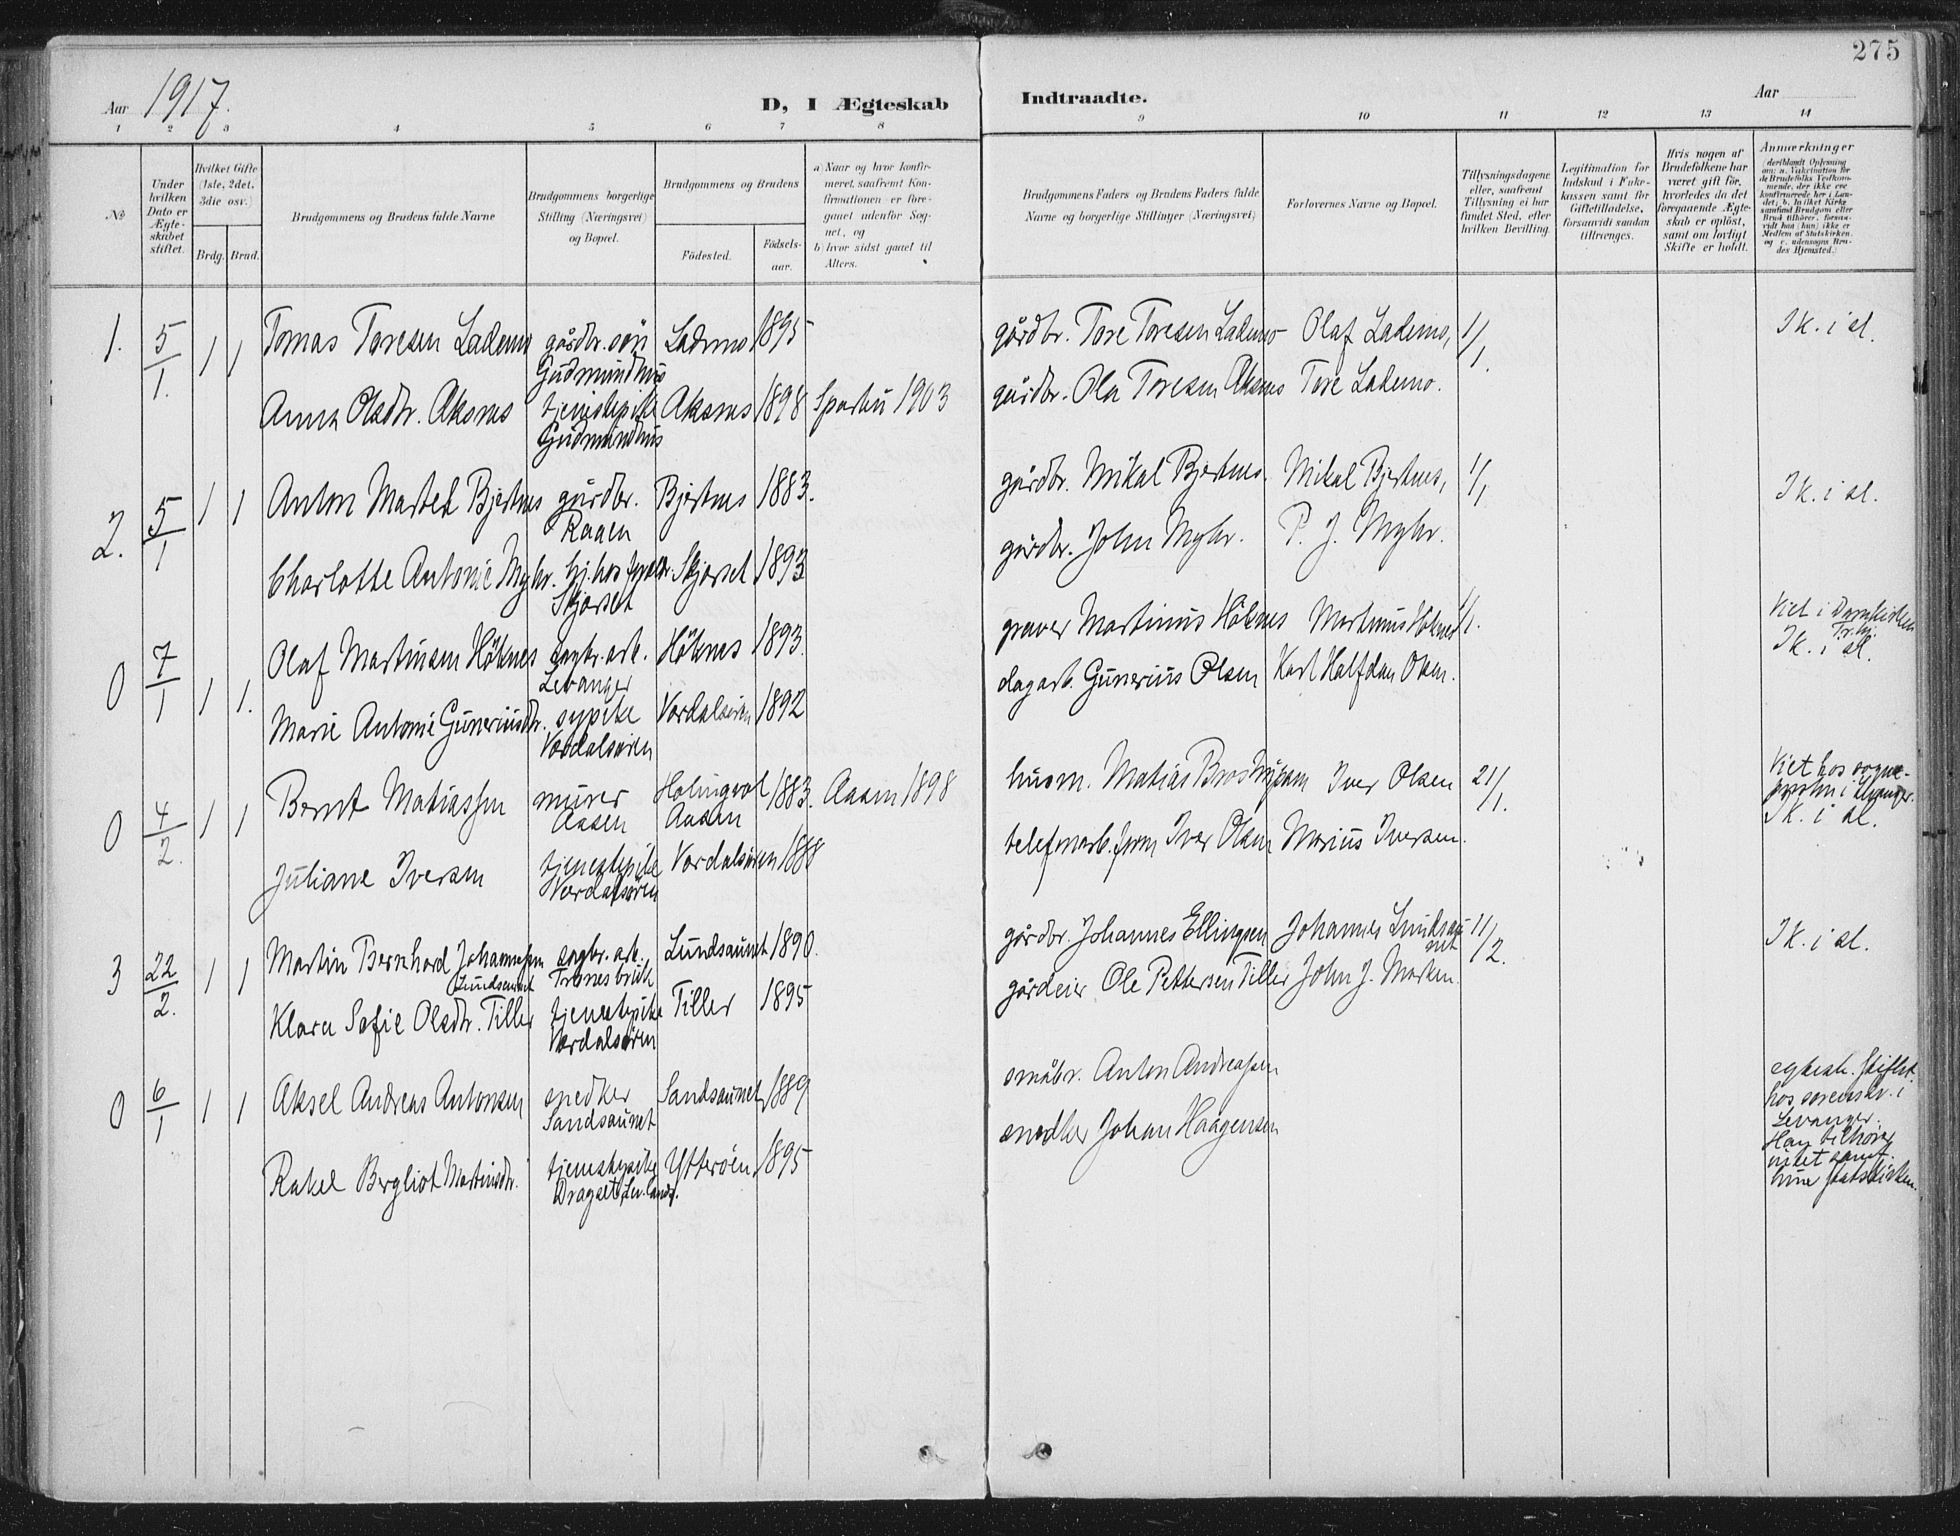 275
Aar 1917.
D, I Ægteskab Indtraadte.
Aar
1 2 3 4 5 6 7 8 9 10 11 12 13 14
№
Under hvilken Dato er Ægteskabet stiftet.
Hvilket Gifte (1ste, 2det, 3die osv.)
Brdg. Brud.
Brudgommens og Brudens fulde Navne
Brudgommens borgerlige Stilling (Næringsvei) og Bopæl.
Brudgommens og Brudens
Fødested.
Fødsels-aar.
a) Naar og hvor konfirmeret, saafremt Konfirmationen er foregaaet udenfor Sognet, og
b) hvor sidst gaaet til Alters.
Brudgommens Faders og Brudens Faders fulde Navne og borgerlige Stillinger (Næringsvei)
Forlovernes Navne og Bopæl.
Tillysningsdagene eller, saafremt Tillysning ei har fundet Sted, efter hvilken Bevilling.
Legitimation for Indskud i Enkekassen samt for Giftetilladelse, forsaavidt saadan tiltrænges.
Hvis nogen af Brudefolkene har været gift før, hvorledes da det foregaaende Ægteskab er opløst, samt om lovligt Skifte er holdt.
Anmærkninger
1. 5/1. 1 1 Tomas Toresen Lademo gårdbr. søn Lademo 1895 gårdbr. Tore Toresen Lademo Olaf Lademo, 1/1. Ik. i al.
Gudmundhus
Anna Olsdtr. Aksnes tjenestepike Aksnes 1898 Sparbu 1903 gårdbr. Ola Toresen Aksnes Tore Lademo.
Gudmundhus
2. 5/1 1 1 Anton Martel Bjertnes gårdbr. Bjertnes 1883. gårdbr. Mikal Bjertnes. Mikal Bjertnes, 1/1 Ik. i al.
Raaen
Charlotte Antonie Myhr. Skjørset 1893 gårdbr. John Myhr. P. J. Myhr.
Skjørset
0 7/1 1 1. Olaf Martinsen Höknes sagbr. arb. Höknes 1893. graver Martinus Höknes Martinus Höknes 1/1. Viet i Domkirken Tr.hj.
Levanger
Ik. i al.
Marie Antonie Guneriusdtr. sypike Vørdalsøren 1892 dagarb. Gunerius Olsen Karl Halfdan Olsen.
Værdalsøren
0 4/2. 1 1 Bernt Matiassen murer 1883. Aasen 1898 husm. Matias Iver Olsen 21/1. Viet hos sogne-
Aasen Aasen
Ik. i al.
Juliane Iversen tjenestepike Værdalsøren 1888 telefonarb. form Iver Olsen Marius Iversen.
Værdalsøren
3 22/2. 1 1 Martin Bernhard Johannessen sagbr. arb. Lundsaunet 1890. gårdbr. Johannes Ellingsen Johannes Lundsaunet 11/2. Ik. i al.
Lundsaunet Trones bruk
Klara Sofie Olsdtr. Tiller tjenestepike Tiller 1895 gårdeier Ole Pettersen Tiller John J. Marken.
Værdalsøren
0 6/1 1 1 Aksel Andreas Antonsen snedker Sandsaunet 1889 småbr. Anton Andreassen egtesk. stiftet
Sandsaunet
hos sorenskr. i
Levanger.
Rakel Bergliot Martinsdtr. tjenestepike Ytterøen 1895 snedker Johan Haagensen Han tilhører
Dragset, Lev. lands.
intet samf.
hun statskirken.